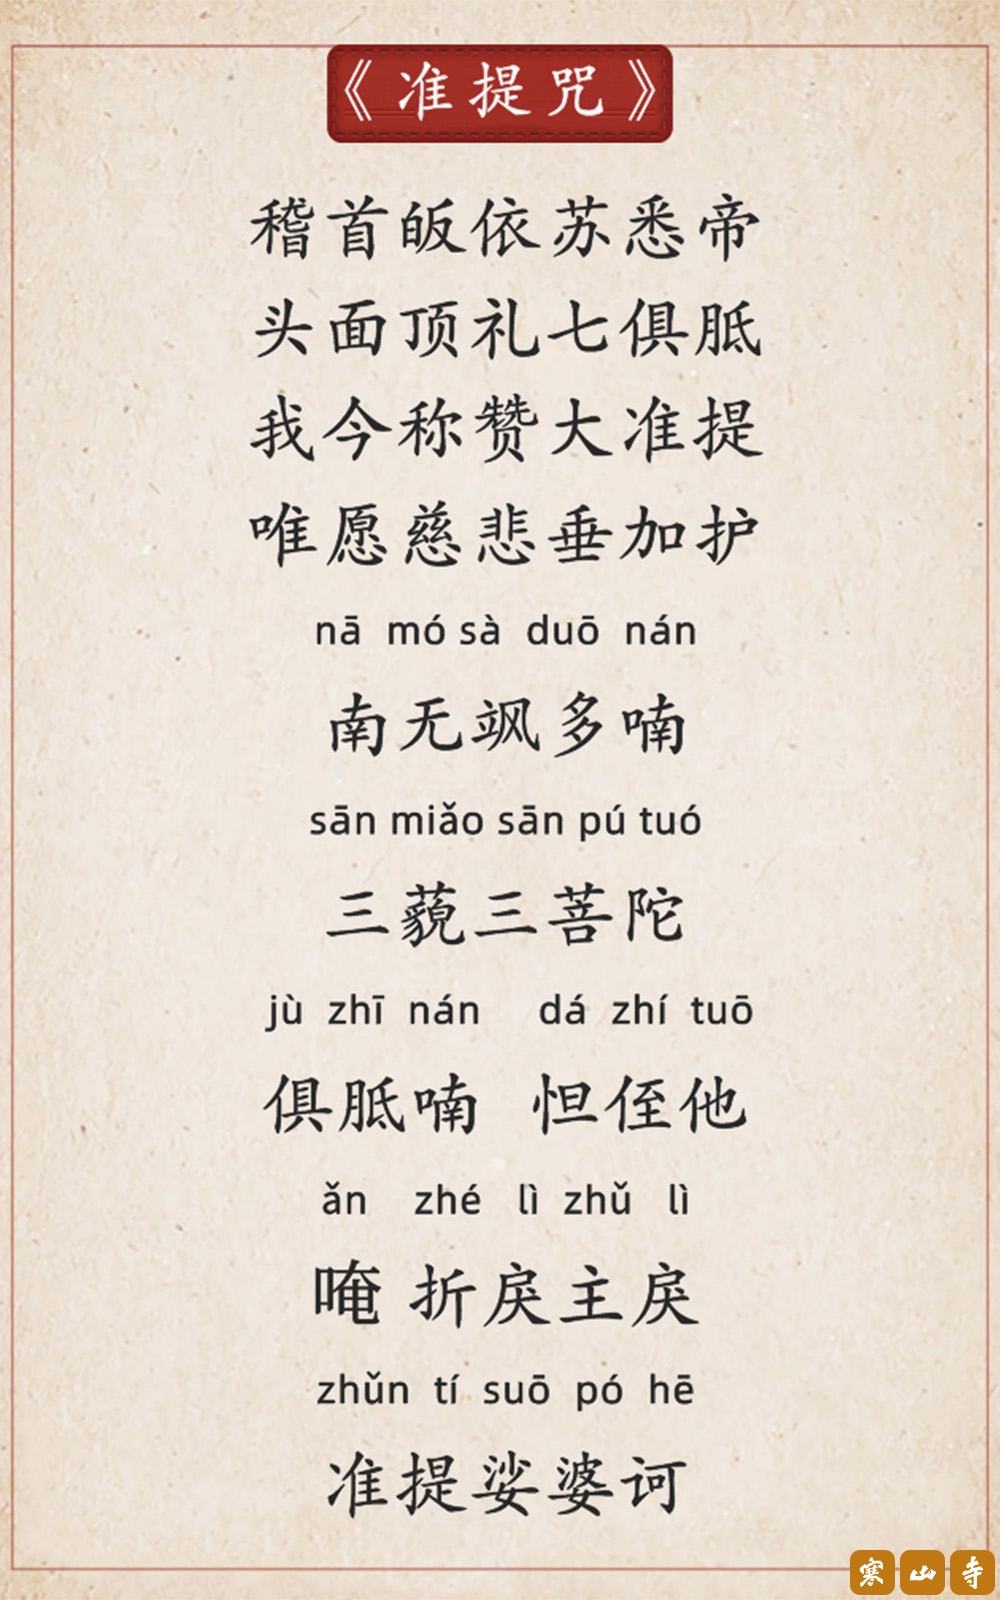 《准提咒》
稽首皈依苏悉帝
头面顶礼七俱胝
我今称赞大准提
唯愿慈悲垂加护
nā mó sà duō nán
南无飒多喃
sān miǎo sān pú tuó
三藐三菩陀
jù zhī nán dá zhí tuō
俱胝喃 怛侄他
ǎn zhé lì zhǔ lì
唵 折戾主戾
zhǔn tí suō pó hē
准提娑婆诃
寒山寺